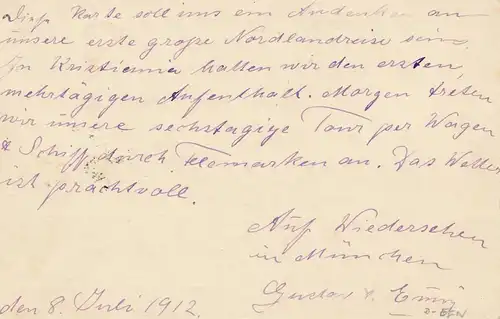 Diese Karte soll uns ein Andenken an
unsere erste große Nordlandreise sein.
In Kristiania hatten wir den ersten,
mehrtägigen Aufenthalt. Morgen treten
wir unsere sechstägige Tour per Wagen
& Schiff durch Telemarken an. Das Wetter
ist prachtvoll.
Auf Wiedersehen
in München
Gustav &
den 8. Juli 1912.